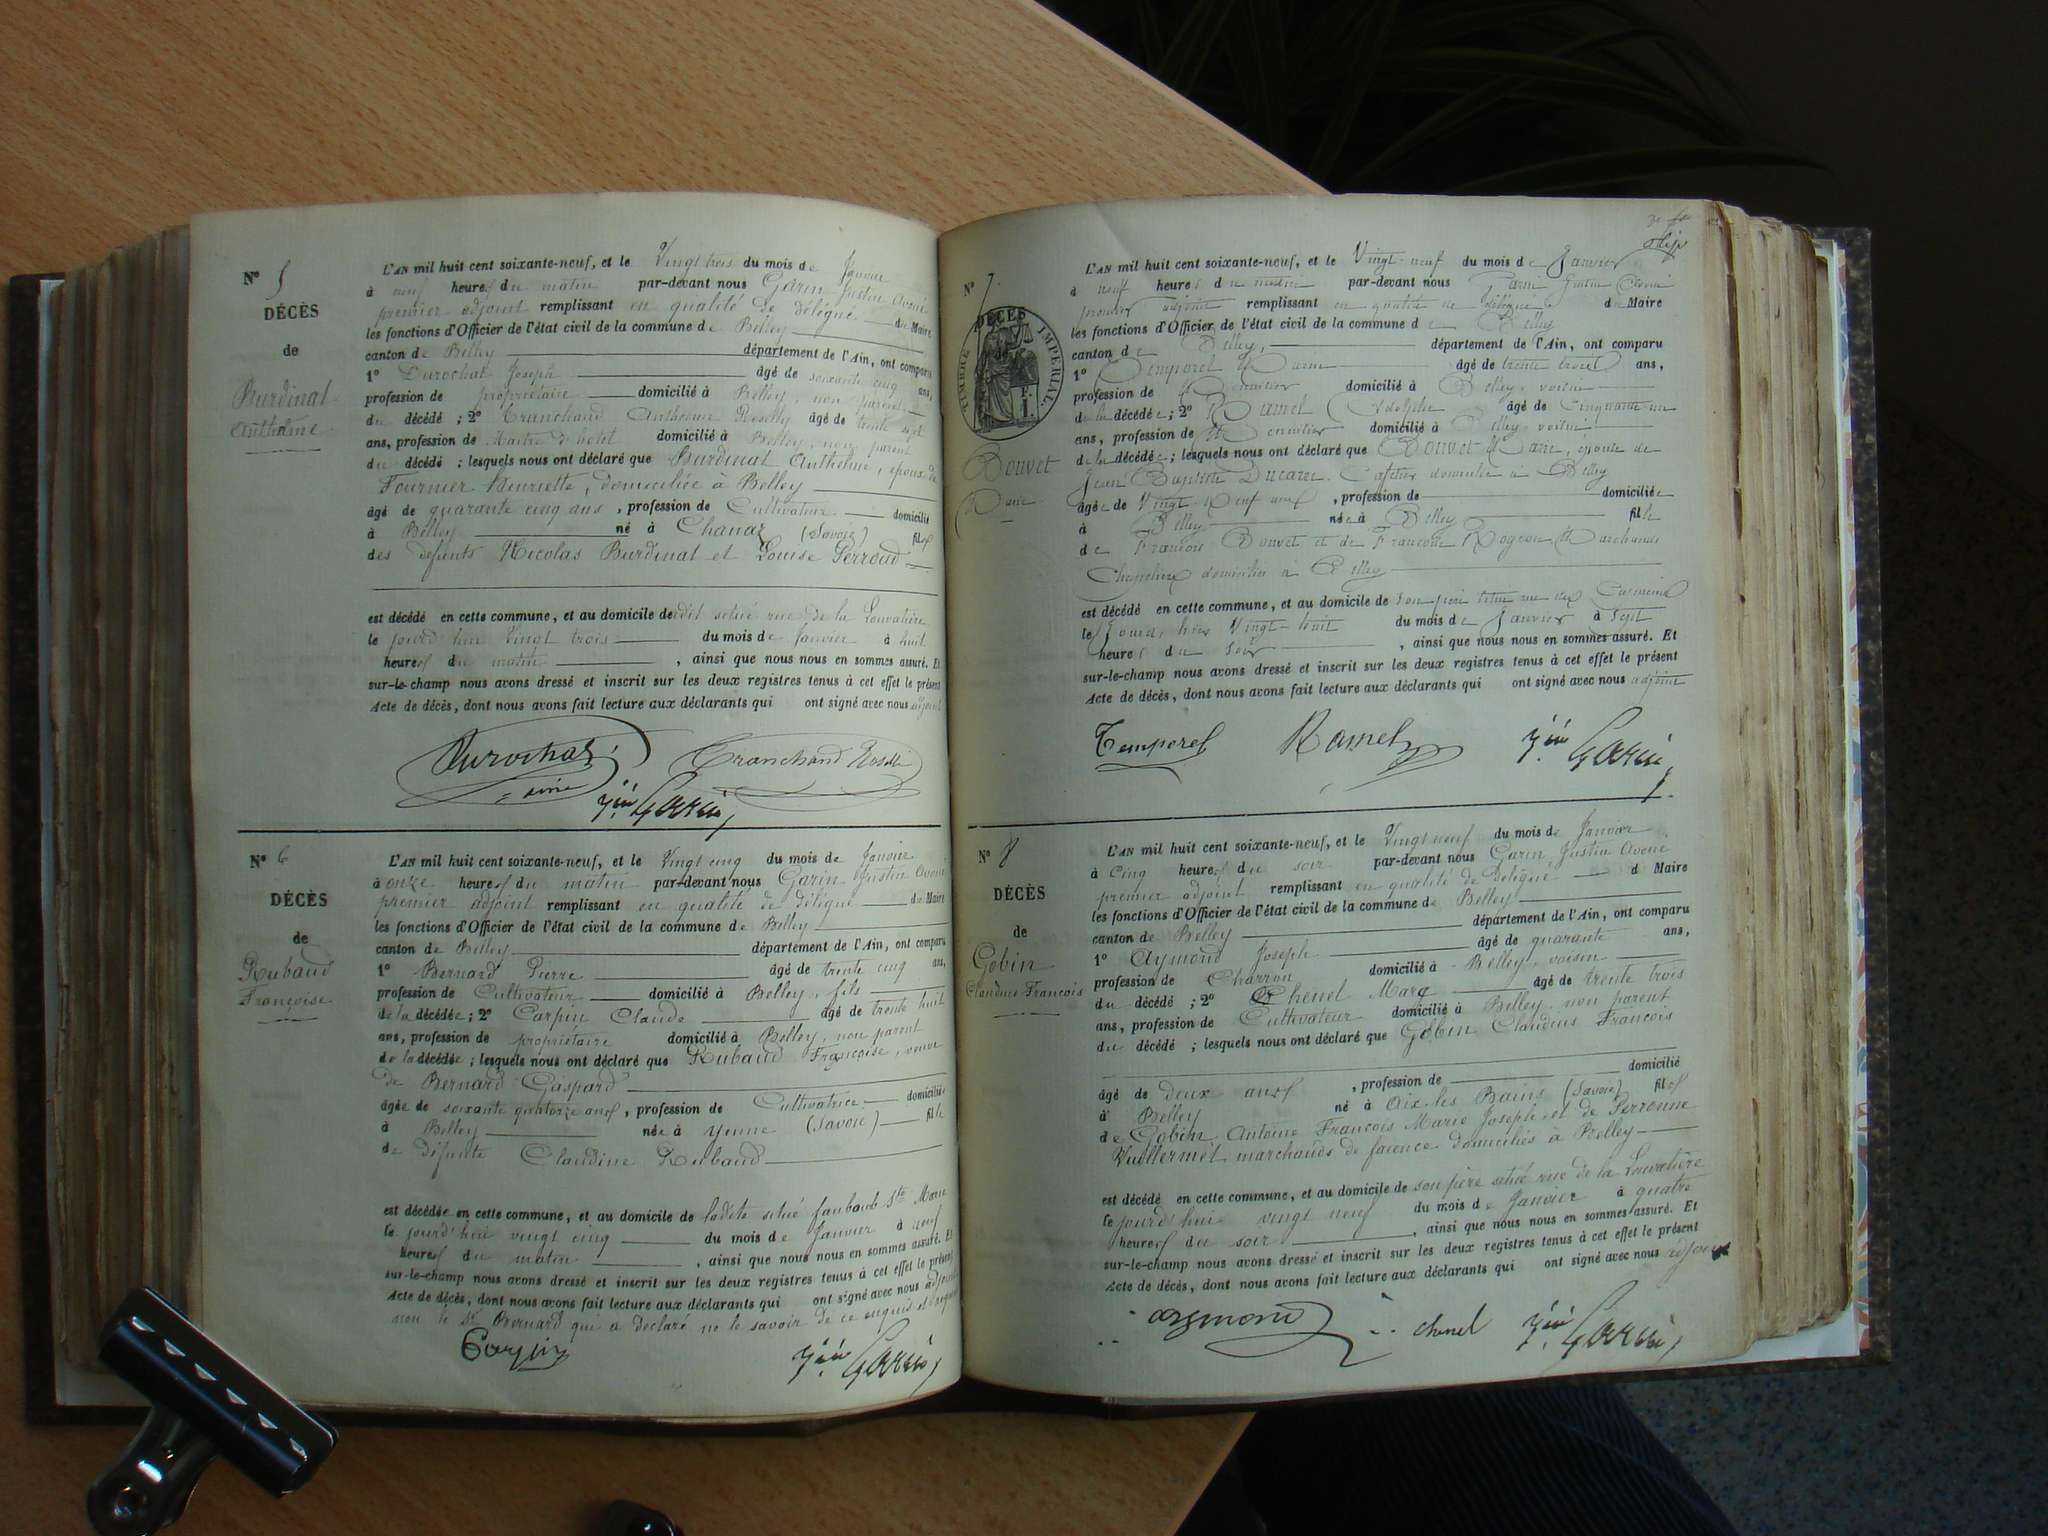 N° 5
DÉCÈS
de
Burdinat
Anthelme
L'AN mil huit cent soixante-neuf, et le Vingt trois du mois de Janvier
à neuf heures du matin par-devant nous Garin Justin Avoué
premier adjoint remplissant en qualité de délégué du Maire
les fonctions d'Officier de l'état civil de la commune de Belley
canton de Belley département de l'Ain, ont comparu
1° Durochat Joseph âgé de soixante cinq ans,
profession de propriétaire domicilié à Belley, non parent
du décédé ; 2° Tranchand Anthelme Rosselly âgé de trente sept
ans, profession de Maître d'hotel domicilié à Belley, non parent
du décédé ; lesquels nous ont déclaré que Burdinat Anthelme, époux de
Fournier Henriette, domiciliée à Belley
âgé de quarante cinq ans, profession de Cultivateur domicilié
à Belley né à Chanaz (Savoie) fils
des défunts Nicolas Burdinat et Louise Perroud
est décédé en cette commune, et au domicile de dit situé rue de la Louvatière
le jourd'hui vingt trois du mois de Janvier à huit
heures du matin , ainsi que nous nous en sommes assuré. Et
sur-le-champ nous avons dressé et inscrit sur les deux registres tenus à cet effet le présent
Acte de décès, dont nous avons fait lecture aux déclarants qui ont signé avec nous adjoint
Durochat
ainé
Tranchand Roselli
Jin Garin
N° 6
DÉCÈS
de
Rubaud
Françoise
L'AN mil huit cent soixante-neuf, et le Vingt cinq du mois de Janvier
à onze heures du matin par-devant nous Garin Justin Avoué
premier adjoint remplissant en qualité de délégué du Maire
les fonctions d'Officier de l'état civil de la commune de Belley
canton de Belley département de l'Ain, ont comparu
1° Bernard Pierre âgé de trente cinq ans,
profession de Cultivateur domicilié à Belley, fils
de la décédée ; 2° Carpin Claude âgé de trente huit
ans, profession de propriétaire domicilié à Belley, non parent
de la décédée ; lesquels nous ont déclaré que Rubaud Françoise, veuve
de Bernard Gaspard
âgée de soixante quatorze ans, profession de Cultivatrice domiciliée
à Belley née à Yenne (Savoie) fille
de défunte Claudine Rubaud
est décédée en cette commune, et au domicile de ladite situé faubourg Ste Marie
le jourd'hui vingt cinq du mois de Janvier à neuf
heures du matin , ainsi que nous nous en sommes assuré. Et
sur-le-champ nous avons dressé et inscrit sur les deux registres tenus à cet effet le présent
Acte de décès, dont nous avons fait lecture aux déclarants qui ont signé avec nous adjoint
non le Sr Bernard que a déclaré ne le savoir de ce enquis et requis
Carpin
Jin Garin
N° 7
DÉCÈS
TIMBRE IMPÉRIAL
de
Bouvet
Marie
L'AN mil huit cent soixante-neuf, et le Vingt-neuf du mois de Janvier
à neuf heures du matin par-devant nous Garin Justin Avoué
premier adjoint remplissant en qualité de délégué du Maire
les fonctions d'Officier de l'état civil de la commune de Belley
canton de Belley, département de l'Ain, ont comparu
1° Temporel Marin âgé de trente trois ans,
profession de Menuisier domicilié à Belley, voisin
de la décédée ; 2° Ramel Adolphe âgé de Cinquante un
ans, profession de Menuisier domicilié à Belley, voisin
de la décédée ; lesquels nous ont déclaré que Bouvet Marie, épouse de
Jean Baptiste Ducarre Cafetier domicilié à Belley
âgée de Vingt-Neuf ans, profession de domiciliée
à Belley née à Belley fille
de François Bouvet et de Françoise Rogeon Marchands
Chapeliers domiciliés à Belley
est décédé en cette commune, et au domicile de son père située rue des
le Jourd'hier Vingt-huit du mois de Janvier à Sept
heures du Soir , ainsi que nous nous en sommes assuré. Et
sur-le-champ nous avons dressé et inscrit sur les deux registres tenus à cet effet le présent
Acte de décès, dont nous avons fait lecture aux déclarants qui ont signé avec nous adjoint
Temporel Ramel Jin Garin
N° 8
DÉCÈS
de
Gobin
Claudius François
L'AN mil huit cent soixante-neuf, et le Vingt neuf du mois de Janvier
à cinq heures du soir par-devant nous Garin Justin Avoué
premier adjoint remplissant en qualité de délégué d Maire
les fonctions d'Officier de l'état civil de la commune de Belley
canton de Belley département de l'Ain, ont comparu
1° Aymond Joseph âgé de quarante ans,
profession de Charron domicilié à Belley, voisin
du décédé ; 2° Chenel Marc âgé de trente trois
ans, profession de Cultivateur domicilié à Belley, non parent
du décédé ; lesquels nous ont déclaré que Gobin Claudius François
âgé de deux ans , profession de domicilié
à Belley né à Aix-les Bains (Savoie) fils
de Gobin, Antoine François Marie Joseph et de Perronne
Vuillermet marchands de faïence domiciliés à Belley
est décédé en cette commune, et au domicile de son père situé rue de la Louvatière
le jourd'hui vingt neuf du mois de Janvier à quatre
heures du soir , ainsi que nous nous en sommes assuré. Et
sur-le-champ nous avons dressé et inscrit sur les deux registres tenus à cet effet le présent
Acte de décès, dont nous avons fait lecture aux déclarants qui ont signé avec nous adjoint
Aymond chenel Jin Garin